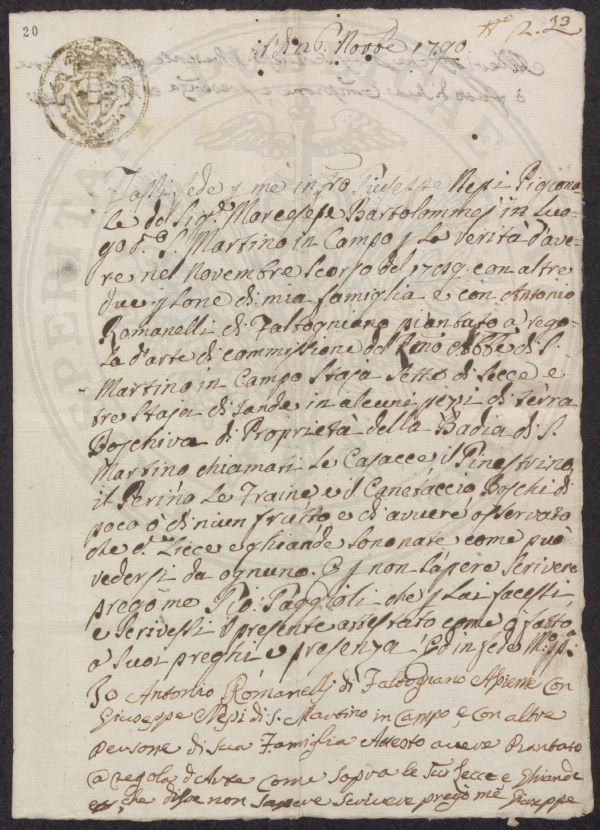 20
N.º 2. 33
Adi 26. Novbe 1790.
Fassi fede p me infrõ Giuseppe Nepi Pigiona-
le del Sigr. Marchese Bartolommej in luo-
go d.º S. Martino in Campo p la verità d'ave-
re nel Novembre Scorso del 1789. con altre
due psone di mia famiglia e con Antonio
Romanelli di Faltogniano piantato a rego-
la d'arte di commissione del Rmo Abbe di S.
Martino in Campo Staja Setto di Lecce e
tre Staja di Jande in alcuni pezi di terra
Boschiva di Proprietà della Badia di S.
Martino chiamati le Casacce il Pinestrino,
il Perino le Fraine e il Canetaccio Boschi di
poco o di niun frutto e di avere osservato
che d.e Lecce e ghiande sono nate come può
vedersi da ognuno. E p non sapere scrivere
pregò me Pio Faggioli che p Lui facessi
e scrivessi il presente attestato come ò fatto
a Suoi preghi e presenza. Ed in fede M.º pp.ª
Io Antonio Romanelj di Faltognano Asieme Con
Giuseppe Nepi di S. Martino in Campo e Con altre
Persone di Sua Famiglia Atesto avere Piantato
a regola d'Arte Come Sopra le Sud Lecce e Ghiande
e che disse non Sapere Scrivere pregò me Giuseppe